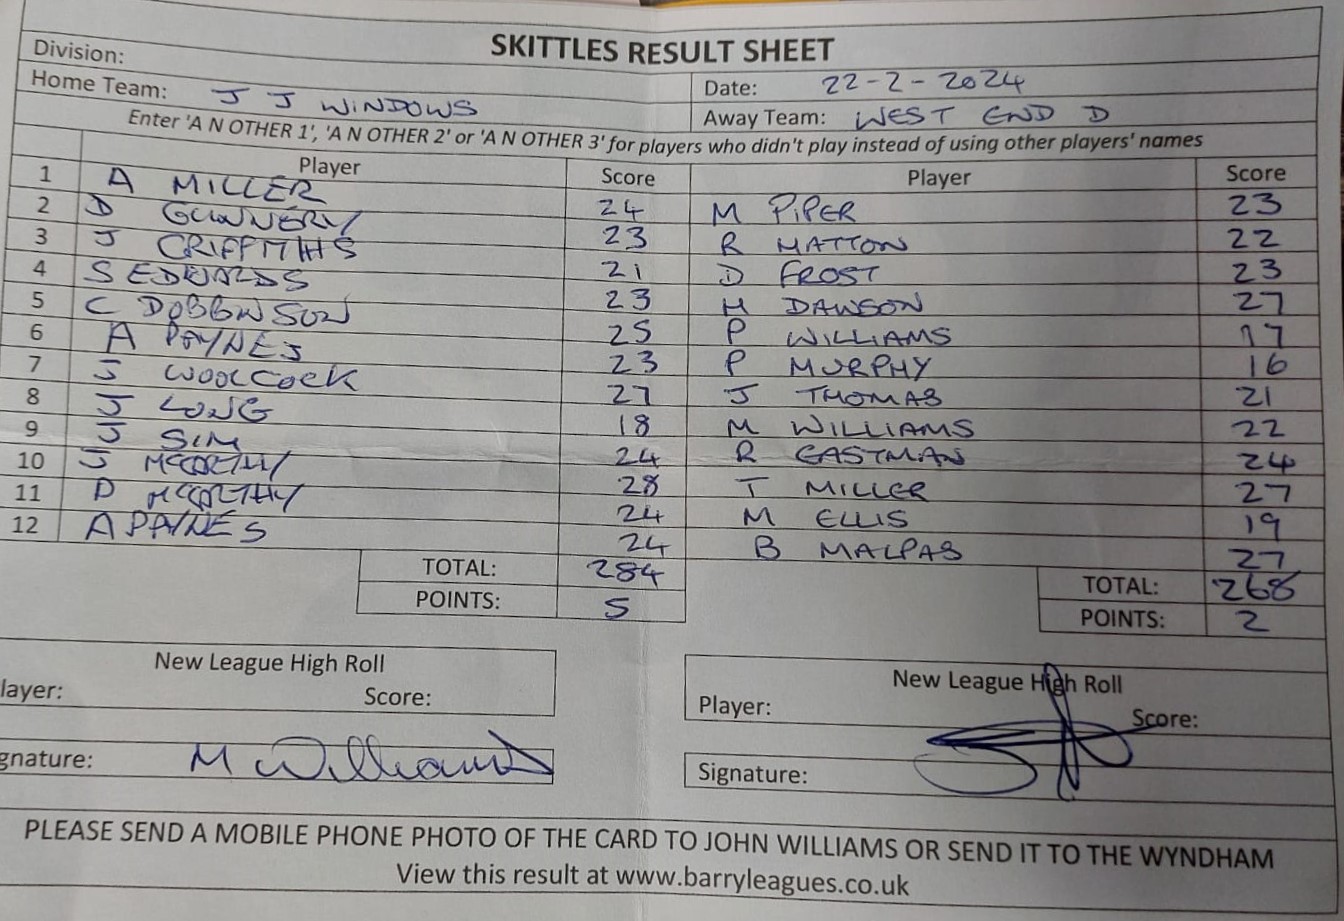 SKITTLES RESULT SHEET
Division:
Home Team: J J WINDOWS Date: 22-2-2024
Away Team: WEST END D
Enter 'A N OTHER 1', 'A N OTHER 2' or 'A N OTHER 3' for players who didn't play instead of using other players' names
Player Score Player Score
1 A MILLER 24 M PIPER 23
2 D GUNNERY 23 R MATTON 22
3 J GRIFFITHS 21 D FROST 23
4 S EDWARDS 23 H DAWSON 27
5 C DOBBINSON 25 P WILLIAMS 17
6 A PAYNES 23 P MURPHY 16
7 J WOOLCOCK 27 J THOMAS 21
8 J LONG 18 M WILLIAMS 22
9 J SIM 24 R EASTMAN 24
10 J MCCORTHY 28 T MILLER 27
11 D MCCORTHY 24 M ELLIS 19
12 A PAYNES 24 B MALPAS 27
TOTAL: 284 TOTAL: 268
POINTS: 5 POINTS: 2
New League High Roll New League High Roll
layer: Score: Player: Score:
gnature: M Williams Signature:
PLEASE SEND A MOBILE PHONE PHOTO OF THE CARD TO JOHN WILLIAMS OR SEND IT TO THE WYNDHAM
View this result at www.barryleagues.co.uk